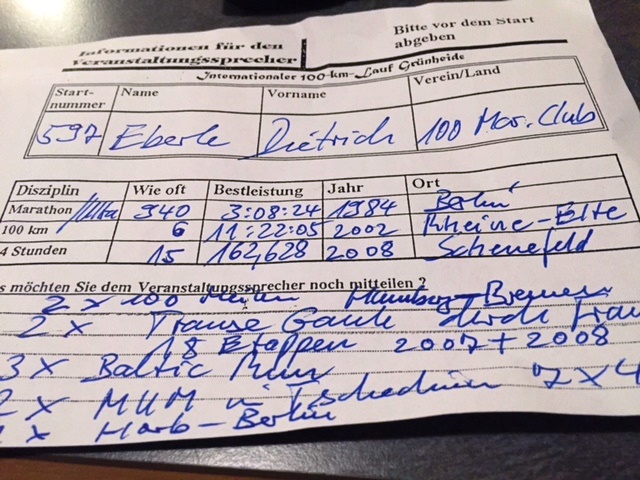 Informationen für den
Veranstaltungssprecher
Bitte vor dem Start
abgeben
Internationaler 100-km-Lauf Grünheide
Start-
nummer Name Vorname Verein/Land
597 Eberle Dietrich 100 Mar. Club
Disziplin Wie oft Bestleistung Jahr Ort
Marathon /Ultra 940 3:08:24 1984 Berlin
100 km 6 11:22:05 2002 Rheine-Elte
4 Stunden 15 162,628 2008 Schenefeld
s möchten Sie dem Veranstaltungssprecher noch mitteilen ?
2 x 100 Meilen Hamburg-Bremen
2 x Transe Gaule durch Fran
18 Etappen 2007 + 2008
3 x Baltic Run
2 x MUM in Tschechien 7 x 4
x Harb-Berlin